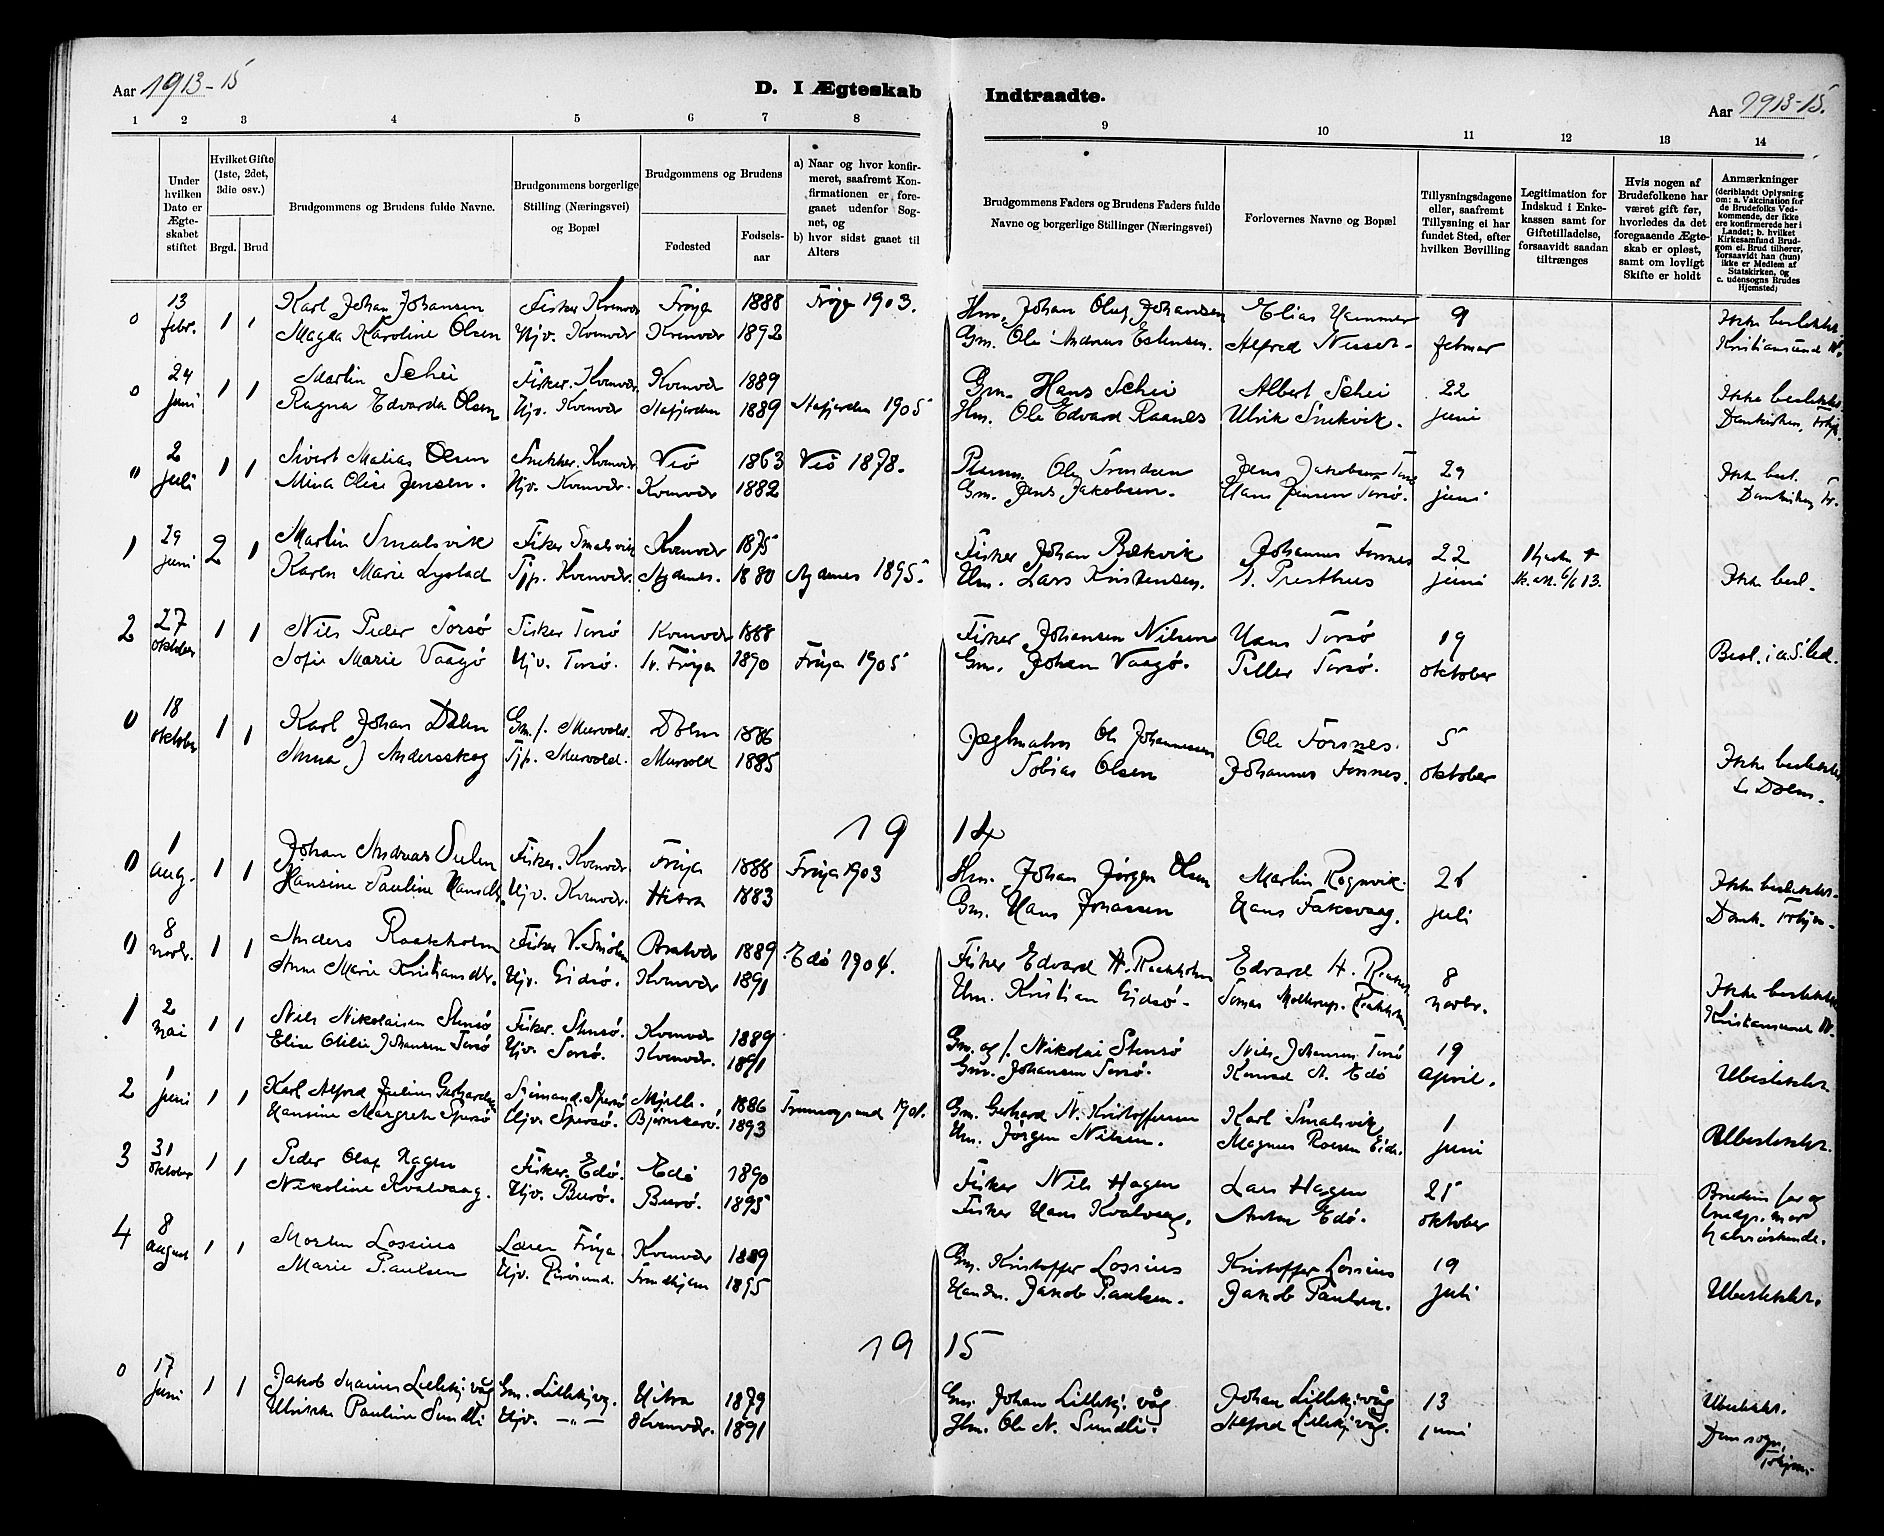 Aar 1913-15
D. I Ægteskab Indtraadte.
Aar 1913-15.
1 2 3 4 5 6 7 8 9 10 11 12 13 14
Under hvilken Dato er Ægteskabet stiftet
Hvilket Gifte (1ste, 2det, 3die osv.)
Brgd. Brud
Brudgommens og Brudens fulde Navne.
Brudgommens borgerlige Stilling (Næringsvei) og Bopæl
Brudgommens og Brudens
Fødested
Fødsels-aar
a) Naar og hvor konfirmeret, saafremt Konfirmationen er foregaaet udenfor Sognet, og
b) hvor sidst gaaet til Alters
Brudgommens Faders og Brudens Faders fulde Navne og borgerlige Stillinger (Næringsvei)
Forlovernes Navne og Bopæl
Tillysningsdagene eller, saafremt Tillysning ei har fundet Sted, efter hvilken Bevilling
Legitimation for Indskud i Enkekassen samt for Giftetilladelse, forsaavidt saadan tiltrænges
Hvis nogen af Brudefolkene har været gift før, hvorledes da det foregaaende Ægteskab er opløst, samt om lovligt Skifte er holdt
Anmærkninger (deriblandt Oplysning om: a. Vaccination for de Brudefolks Vedkommende, der ikke ere konfirmerede her i Landet; b. hvilket Kirkesamfund Brudgom el. Brud tilhører, forsaavidt han (hun) ikke er Medlem af Statskirken, og c. udensogns Brudes Hjemsted)
0 13 febr. 1 1 Karl Johan Johansen Fisker Kvenvær Frøya 1888 Frøya 1903. Hm. Johan Oluf Johansen Elias Hammer 9 Ikke beslektet.
Magda Karoline Olsen Hjv. Kvenvær Kvenvær 1892 Gm. Ole Andreas Estensen. Alfred februar Kristiansund N.
0 24 juni 1 1 Martin Schei Fisker. Kvenvær. Kvenvær 1889 Gm. Hans Schei Albert Schei 22 Ikke beslektet.
Ragna Edvarda Olsen Hjv. Kvenvær 1889 1905 Hm. Ole Edvard Raanes Ulrik Snekvik. juni
0 2 juli 1 1 Sivert Matias Olsen Snekker. Kvenvær Veiø 1863 Veiø 1878. Ole Jens Jakobsen 29 Ikke besl.
Mina Olise Jensen. Hjv. Kvenvær. Kvenvær 1882 Gm. Jens Jakobsen. Hans Jensen Torsø. juni
1 29 juni 2 1 Martin Smalsvik Fisker Smalsvik Kvenvær 1875 Fisker Johan Bekvik Johannes Forsnes 22
Karen Marie Lystad Tjp. Kvenvær. Agdenes. 1880 Agdenes 1895. Hm. Lars Kristensen. Presthus juni 6/6 13. Ikke besl.
2 27 oktober 1 1 Nils Peder Torsø Fisker Torsø Kvenvær 1888 Fisker Johansen Nilsen Hans Torsø 19
Sofie Marie Vaagø Hjv. Torsø. N. Frøya 1890 Frøya 1905 Gm. Johan Vaagø. Petter Torsø. oktober Besl. i a. S. led.
0 18 oktober 1 1 Karl Johan Dolm Gm. f. Murvold. Dolm 1886 Ole Johannessen Ole Forsnes. 5
Anna J Andersskog Tjp. Murvold. Murvold 1885 Tobias Olsen Johannes Forsnes. oktober Ikke beslektet
Dolm.
19 14
0 1 aug. 1 1 Johan Andreas Sulen Fisker. Kvenvær Frøya 1888 Frøya 1903 Hm. Johan Jørgen Olsen Martin Rognvik. 26 Ikke beslektet.
Hansine Pauline Hansdtr. Hjv. Kvenvær. Hitra 1883 Gm. Hans Jonassen Hans Faksvaag. juli
0 8 novbr. 1 1 Anders Raakholm Fisker V. Smølen Bratvær 1889 Edø 1904. Fisker Edvard H. Raakholm Edvard H. 8 Ikke beslektet
Anne Marie Kristiansdtr. Hjv. Gidsø. Kvenvær 1891 Hm. Kristian Gidsø. novbr. Kristiansund N.
1 2 mai 1 1 Nils Nikolaisen Stensø Fisker. Stensø. Kvenvær 1889 Gm. og f. Nikolai Stensø Nils Johansen Torsø 19
Elise Otilie Johansen Torsø Hjv. Torsø. Kvenvær. 1891 Gm. Johansen Torsø. Konrad A. Edø april. Ubeslektet.
2 1 juni 1 1 Karl Alfred Julius Gerhardsen Sjømand. Spersø 1886 1901. Gm. Gerhard N. Kristoffersen Karl Smalsvik 1
Hansine Margrete Spersø Hjv. Spersø. 1893 Hm. Jørgen Nilsen. Magnus juni Ubeslektet.
3 31 oktober 1 1 Peder Olaf Hagen Fisker. Edø. Edø 1890 Fisker Nils Hagen Lars Hagen 25 Brudens far og
Nikoline Kvalvaag. Hjv. Burø. Burø. 1895 Fisker Hans Kvalvaag. Anton Edø. oktober brudg. mor
halvsøskende.
4 8 august 1 1 Morten Lossius Lærer Frøya. Kvenvær 1889 Gm. Kristoffer Lossius Kristoffer Lossius 19
Marie Paulsen Hjv. Trondhjem 1895 Handm. Jakob Paulsen. Jakob Paulsen. juli Ubeslektet.
19 15
0 17 juni 1 1 Jakob Marius Lillekj. våg Gm. Lillekjvg. Hitra 1879 Gm. Johan Lillekj. våg Johan Lillekj. våg 13 Ubeslektet.
Ulrikke Pauline Sundli Hjv. —"— Kvenvær. 1891 Hm. Ole N. Sundli. Alfred Lillekj. våg. juni